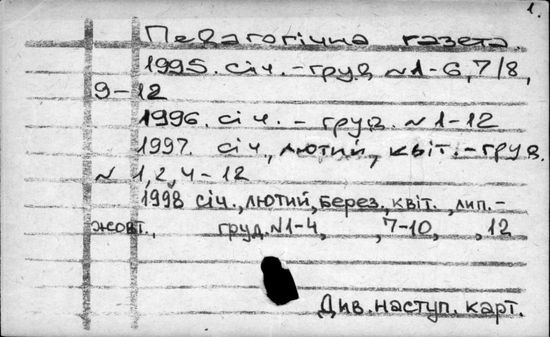 1.
Педагогічна газета.
1995. січ. – груд. №1-6, 7/8,
9-12
1996. січ. – груд. №1-12
1997. січ., лютий, квіт. – груд.
№ 1, 2, 4-12
1998 січ., лютий, берез., квіт. , лип. –
жовт., груд. №1-4, , 7-10, , 12
Див. наступ. карт.